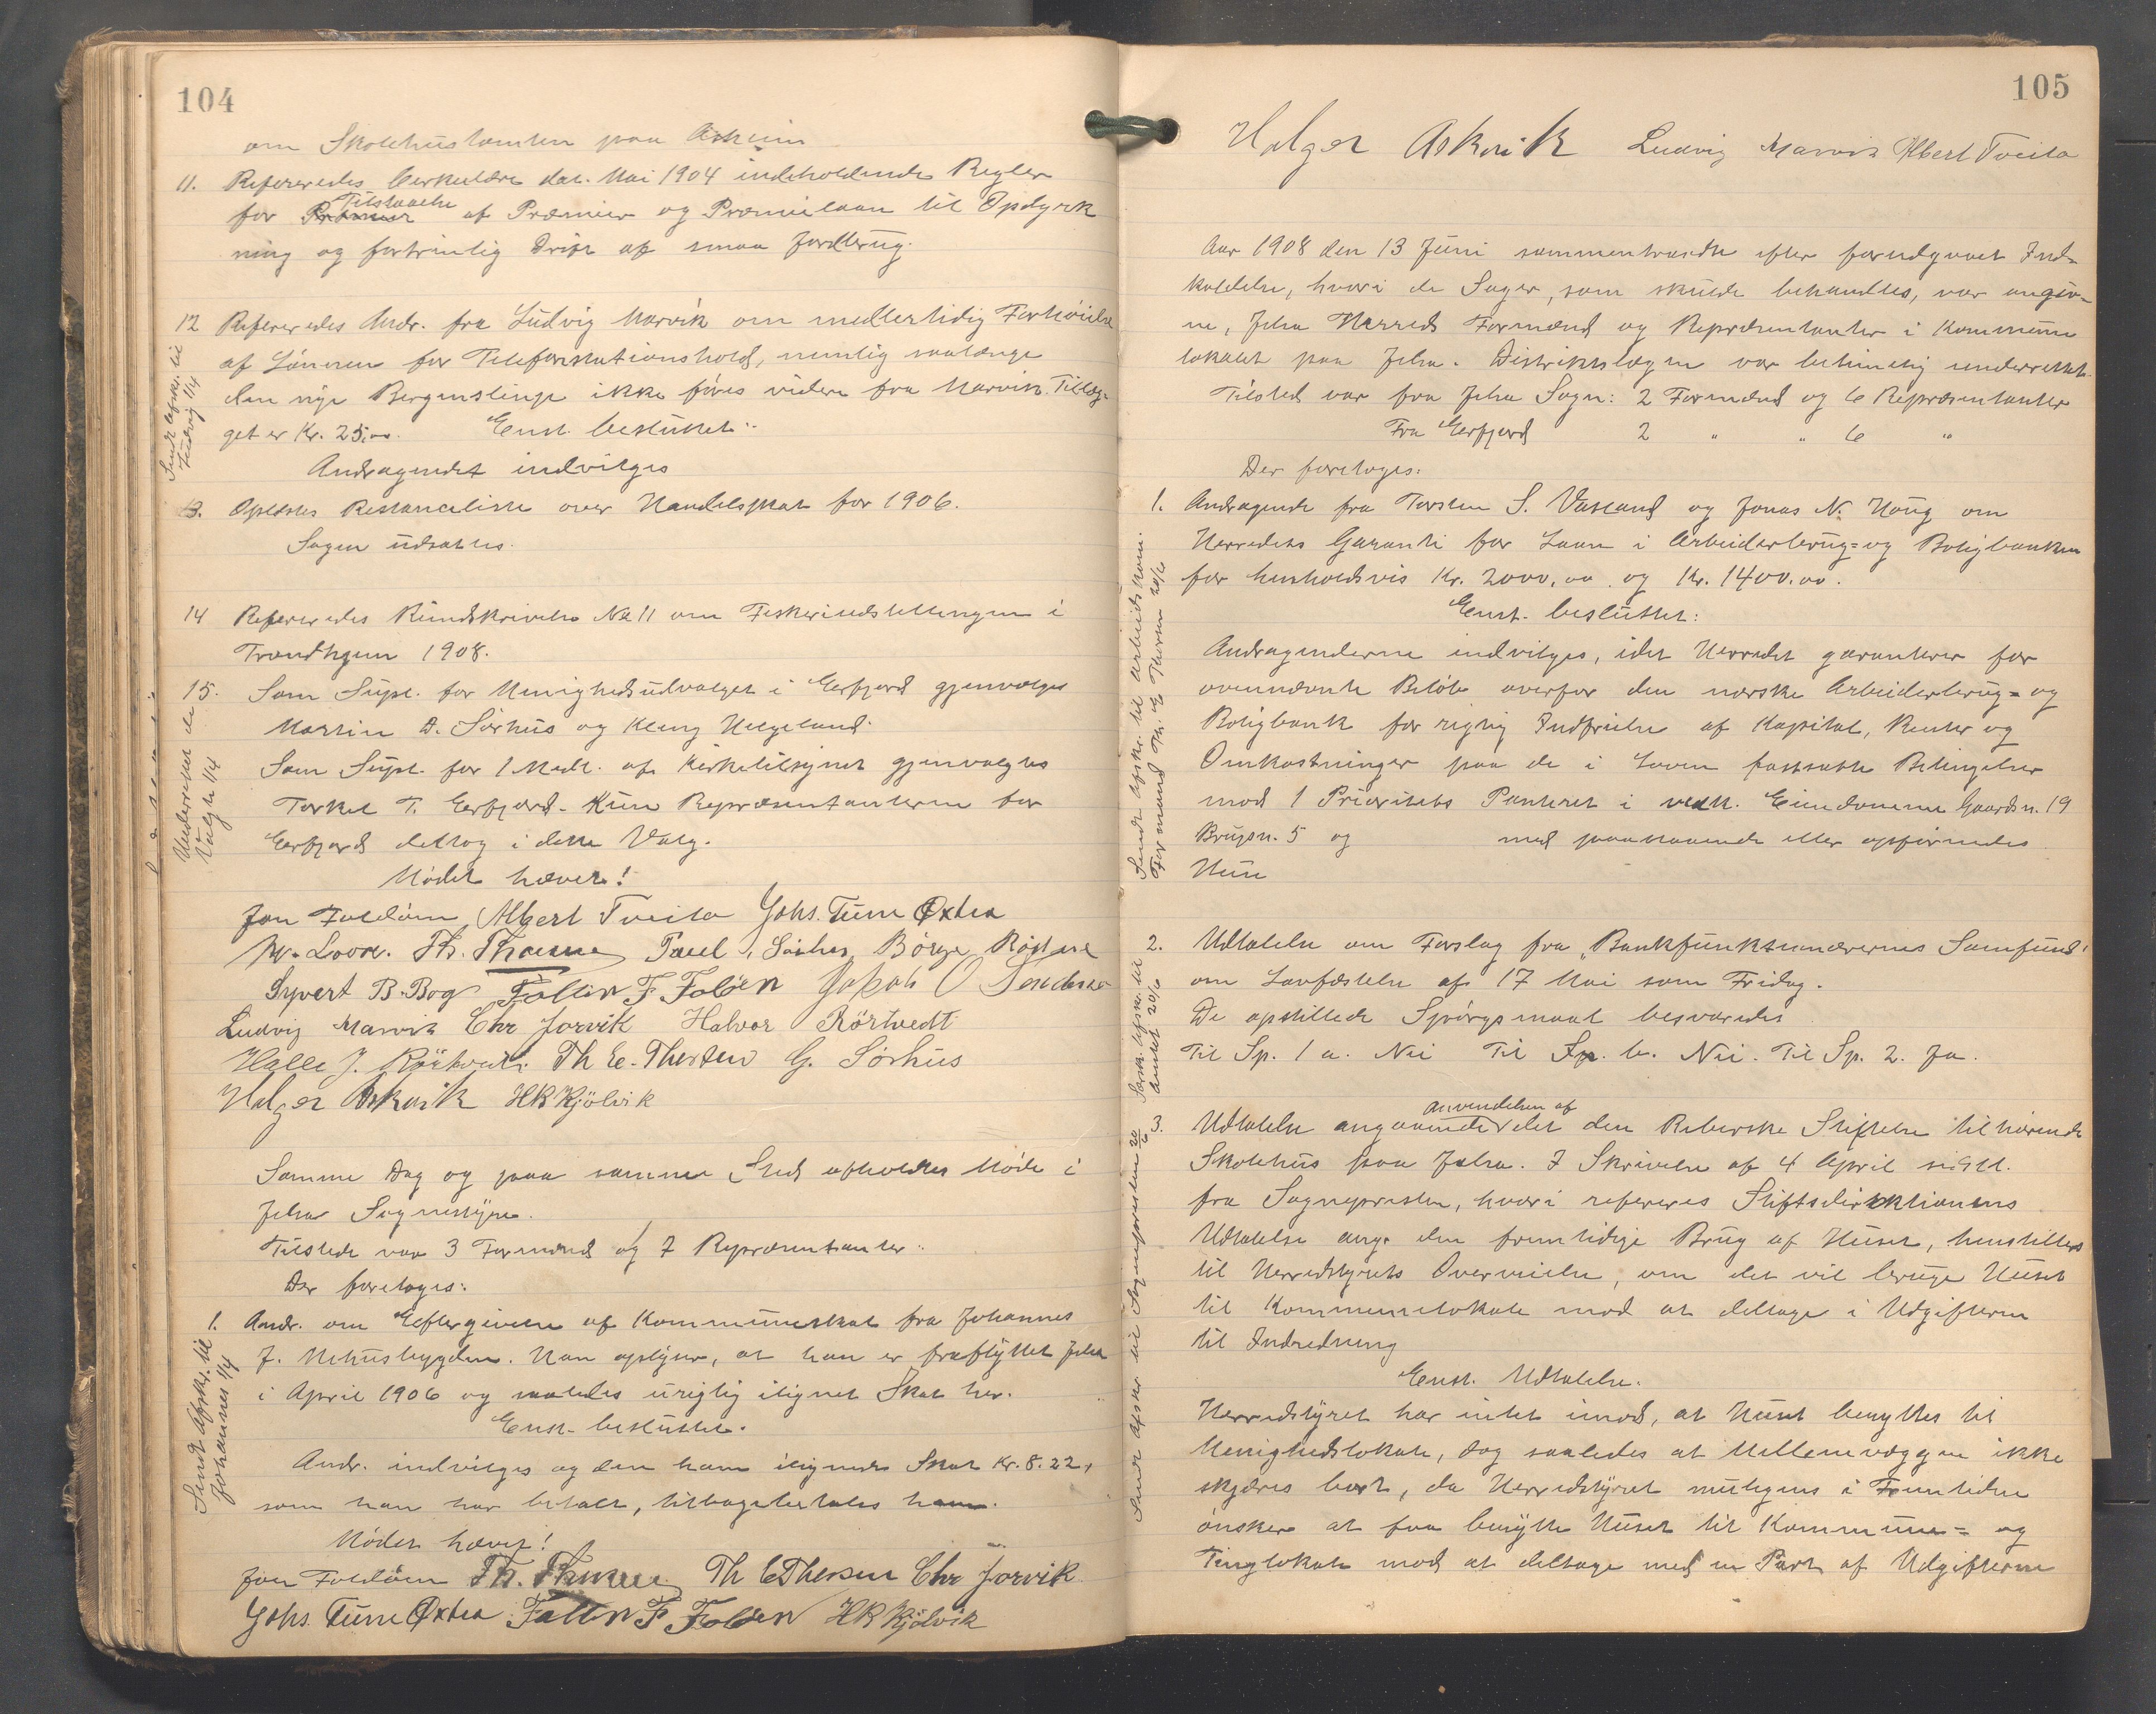 104
om Skolehustomten paa Askeim
11. Refereredes Cirkulære dat. Mai 1904 indeholdende Regler
for Tilstaaelse af Præmier og Præmielaan til Opdyrk
ning og fortrinlig Drift af smaa Jordbrug.
12 Refereredes Andr. fra Ludvig Marvik om midlertidig Forhøielse
af Lønnen for Telefonstationshold, nemlig saalænge
den nye Bergenslinje ikke føres videre fra Marvik. Tillæg-
get er Kr. 25,00. Enst. besluttet:
Andragendet indvilges
Sendt Afskr. til
Ludvig 1/4
13. Oplæstes Restanceliste over Handelsskat for 1906.
Sagen udsattes.
14 Refereredes Rundskrivelse No 11 om Fiskeriudstillingen i
Trondhjem 1908.
15. Som Supl. for Menighedsudvalget i Erfjord gjenvalgtes
Martin A. Sørhus og Kleng Helgeland.
Som Supl. for 1 Medl. af Kirketilsynet gjenvalgtes
Torkel T. Erfjord. Kun Repræsentanterne for
Erfjord deltog i dette Valg.
Underrettet de
Valgte 1/4
Mødet hævet!
Jon Foldøen Albert Tveita Johs. Tune Øxtra
W. Loova. Th. Thorsen Paul Sørhus Børge Rørtvedt
Syvert B. Bog Fatten F. Foløen Jakob O Sendenes
Ludvig Marvik Chr Jorvik Halvor Rørtvedt
Halle J. Rørtvedt. Th E. Thorsen G. Sørhus
Holger Askvik HRKjølvik
Samme Dag og paa samme Sted afholdtes Møde i
Jelsa Sognestyre.
Tilstede var 3 Formænd og 7 Repræsentanter.
Der foretoges:
1. Andr. om Eftergivelse af Kommuneskat fra Johannes
J. Nehusbygden. Han oplyser, at han er fraflyttet Jelsa
i April 1906 og saaledes urigtig ilignet Skat her.
Enst. besluttet.
Andr. indvilges og den ham ilignede Skat Kr. 8.22,
som han har betalt, tilbagebetales ham.
Sendt Afskr. til
Johannes 1/4
Mødet hævet!
Jon Foldøen Th. Thorsen Th E Thorsen Chr Jorvik
Johs. Tune Øxtra Fatten F. Foløen HR Kjølvik
105
Holger Askvik Ludvig Marvik Albert Tveita
Aar 1908 den 13 Juni sammentraadte efter forudgaaet Ind-
kaldelse, hvori de Sager, som skulde behandles, var angiv-
ne, Jelsa Herreds Formænd og Repræsentanter i Kommune
lokalet paa Jelsa. Distriktslægen var betimelig underrettet.
Tilsted var fra Jelsa Sogn: 2 Formænd og 6 Repræsentanter
Fra Erfjord 2 " " 6 "
Der foretoges:
1. Andragende fra Torsten S. Vasland og Jonas N. Haug om
Herredets Garanti for Laan i Arbeiderbrug= og Boligbanken
for henholdsvis Kr. 2000,00 og Kr. 1400.00.
Enst. besluttet:
Andragenderne indvilges, idet Herredet garanterer for
ovennævnte Beløb overfor den norske Arbeiderbrug= og
Boligbank for rigtig Indfrielse af Kapital, Renter og
Omkostninger paa de i Loven fastsatte Betingelser
mod 1 Prioritets Panteret i vedk. Eiendomme Gaardsn. 19
Brugsn. 5 og med paastaaende eller opførendes
Huse
Sendt Afskr. til Arbeidskom.
Formand Th. E Thorsen 20/6
2. Udtalelse om Forslag fra "Bankfunktionærernes Samfund"
om Lovfæstelse af 17 Mai som Fridag.
De opstillede Spørgsmaal besvaredes
Til Sp. 1 a. Nei Til Sp. b. Nei. Til Sp. 2. Ja.
Særsk. Afskr. til
Amtet 20/6
3. Udtalelse angaaende anvendelsen af det den Reberske Stiftelse tilhørende
Skolehus paa Jelsa. I Skrivelse af 4 April sidstl.
fra Sognepresten, hvori refereres Stiftsdirektionens
Udtalelse ang. den fremtidige Brug af Huset, henstilles
til Herredstyrets Overveielse, om det vil bruge Huset
til Kommunelokale mod at deltage i Udgifterne
til Indredning
Enst. Udtalelse.
Herredstyret har intet imod, at Huset benyttes til
Menighedslokale, dog saaledes at Mellemvæggen ikke
skjæres bort, da Herredstyret muligens i Fremtiden
ønsker at faa benytte Huset til Kommune= og
Tinglokale mod at deltage med en Part af Udgifterne
Sendt Afskr til Sognepresten 20/6